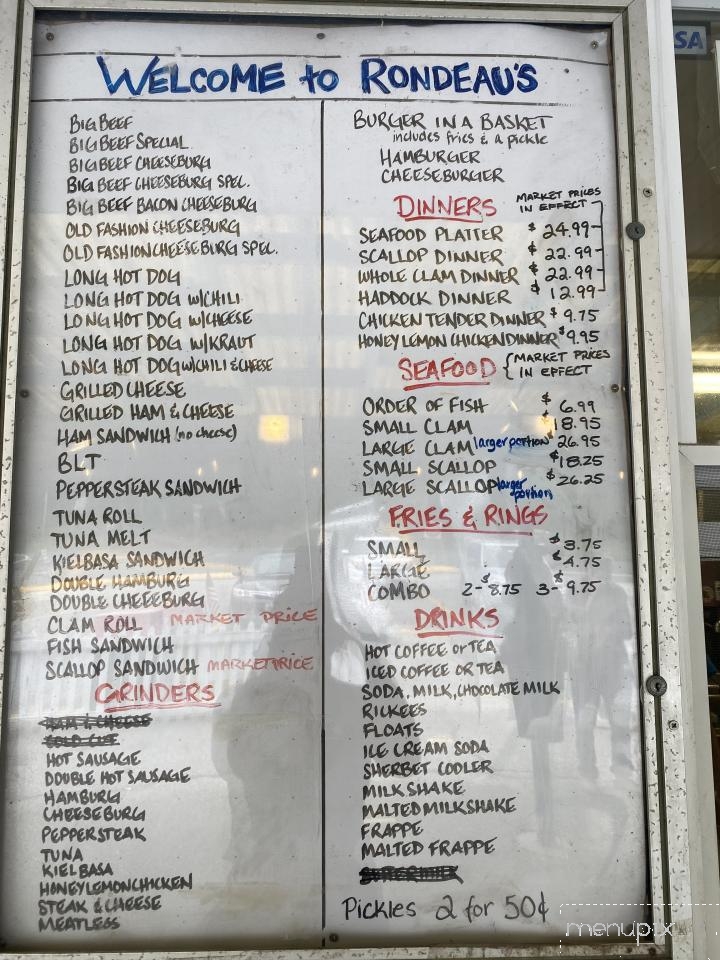 WELCOME to RONDEAU'S
BIG BEEF
BIG BEEF SPECIAL
BIG BEEF CHEESEBURG
BIG BEEF CHEESEBURG SPEC.
BIG BEEF BACON CHEESEBURG
OLD FASHION CHEESEBURG
OLD FASHION CHEESEBURG SPEC.
LONG HOT DOG
LONG HOT DOG W/CHILI
LONG HOT DOG W/CHEESE
LONG HOT DOG W/KRAUT
LONG HOT DOG W/CHILI & CHEESE
GRILLED CHEESE
GRILLED HAM & CHEESE
HAM SANDWICH (no cheese)
BLT
PEPPERSTEAK SANDWICH
TUNA ROLL
TUNA MELT
KIELBASA SANDWICH
DOUBLE HAMBURG
DOUBLE CHEESEBURG
CLAM ROLL MARKET PRICE
FISH SANDWICH
SCALLOP SANDWICH MARKET PRICE
GRINDERS
HAM & CHEESE
COLD CUT
HOT SAUSAGE
DOUBLE HOT SAUSAGE
HAMBURG
CHEESEBURG
PEPPERSTEAK
TUNA
KIELBASA
HONEY LEMON CHICKEN
STEAK & CHEESE
MEATLESS
BURGER IN A BASKET
includes fries & a pickle
HAMBURGER
CHEESEBURGER
DINNERS MARKET PRICES IN EFFECT
SEAFOOD PLATTER $24.99
SCALLOP DINNER $22.99
WHOLE CLAM DINNER $22.99
HADDOCK DINNER $12.99
CHICKEN TENDER DINNER $9.75
HONEY LEMON CHICKEN DINNER $9.95
SEAFOOD {MARKET PRICES IN EFFECT
ORDER OF FISH $6.99
SMALL CLAM $18.95
LARGE CLAM larger portion $26.95
SMALL SCALLOP $18.25
LARGE SCALLOP larger portion $26.25
FRIES & RINGS
SMALL $3.75
LARGE $4.75
COMBO 2-$8.75 3-$9.75
DRINKS
HOT COFFEE or TEA
ICED COFFEE OR TEA
SODA, MILK, CHOCOLATE MILK
RICKEES
FLOATS
ICE CREAM SODA
SHERBET COOLER
MILKSHAKE
MALTED MILKSHAKE
FRAPPE
MALTED FRAPPE
Pickles 2 for 50¢
SA
menupix